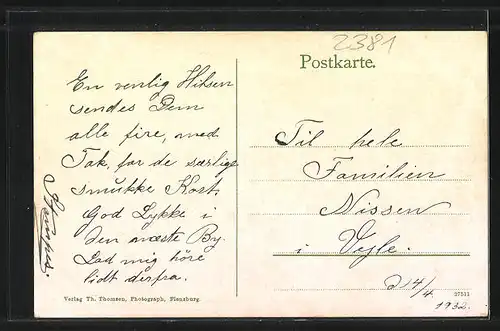 2381
Postkarte.
En venlig Hilsen
sendes Dem
alle fire, med
Tak for de særlige
smukke Kort.
God Lykke i
den næste By.
Lad mig høre
lidt derfra.
Til hele
Familien
Nissen
i Vejle.
d 14/4.
1932.
Verlag Th. Thomsen, Photograph, Flensburg.
37511